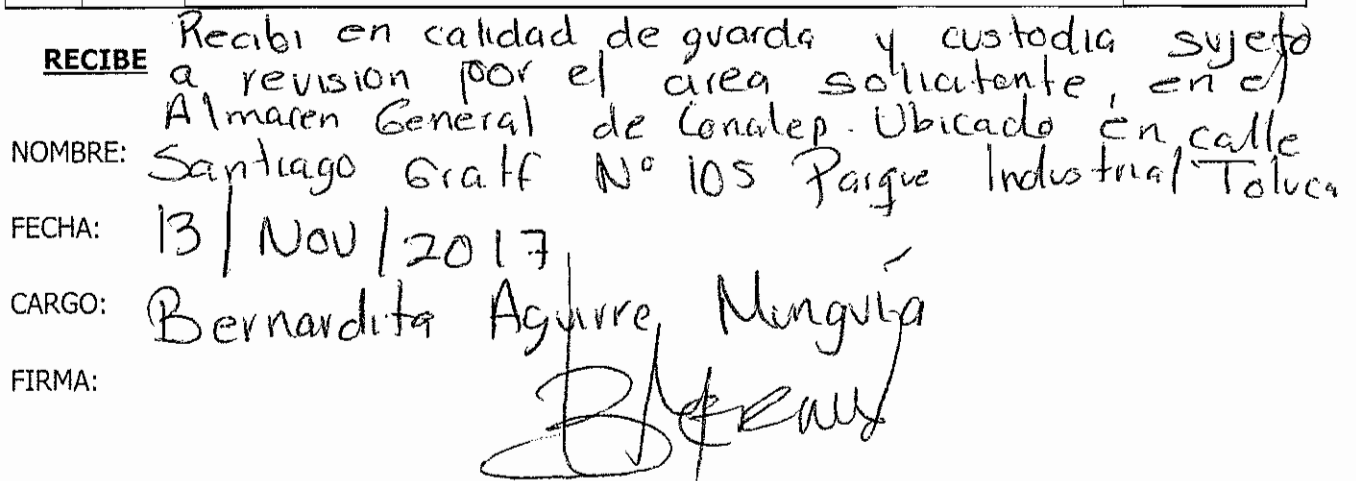 Recibi en calidad de guarda y custodia sujeto
RECIBE a revision por el area solicitante, en el
Almacen General de Conalep. Ubicado en calle
NOMBRE: Santiago Graff N° 105 Parque Industrial Toluca
FECHA: 13/Nov/2017
CARGO: Bernardita Aguirre Munguía
FIRMA: